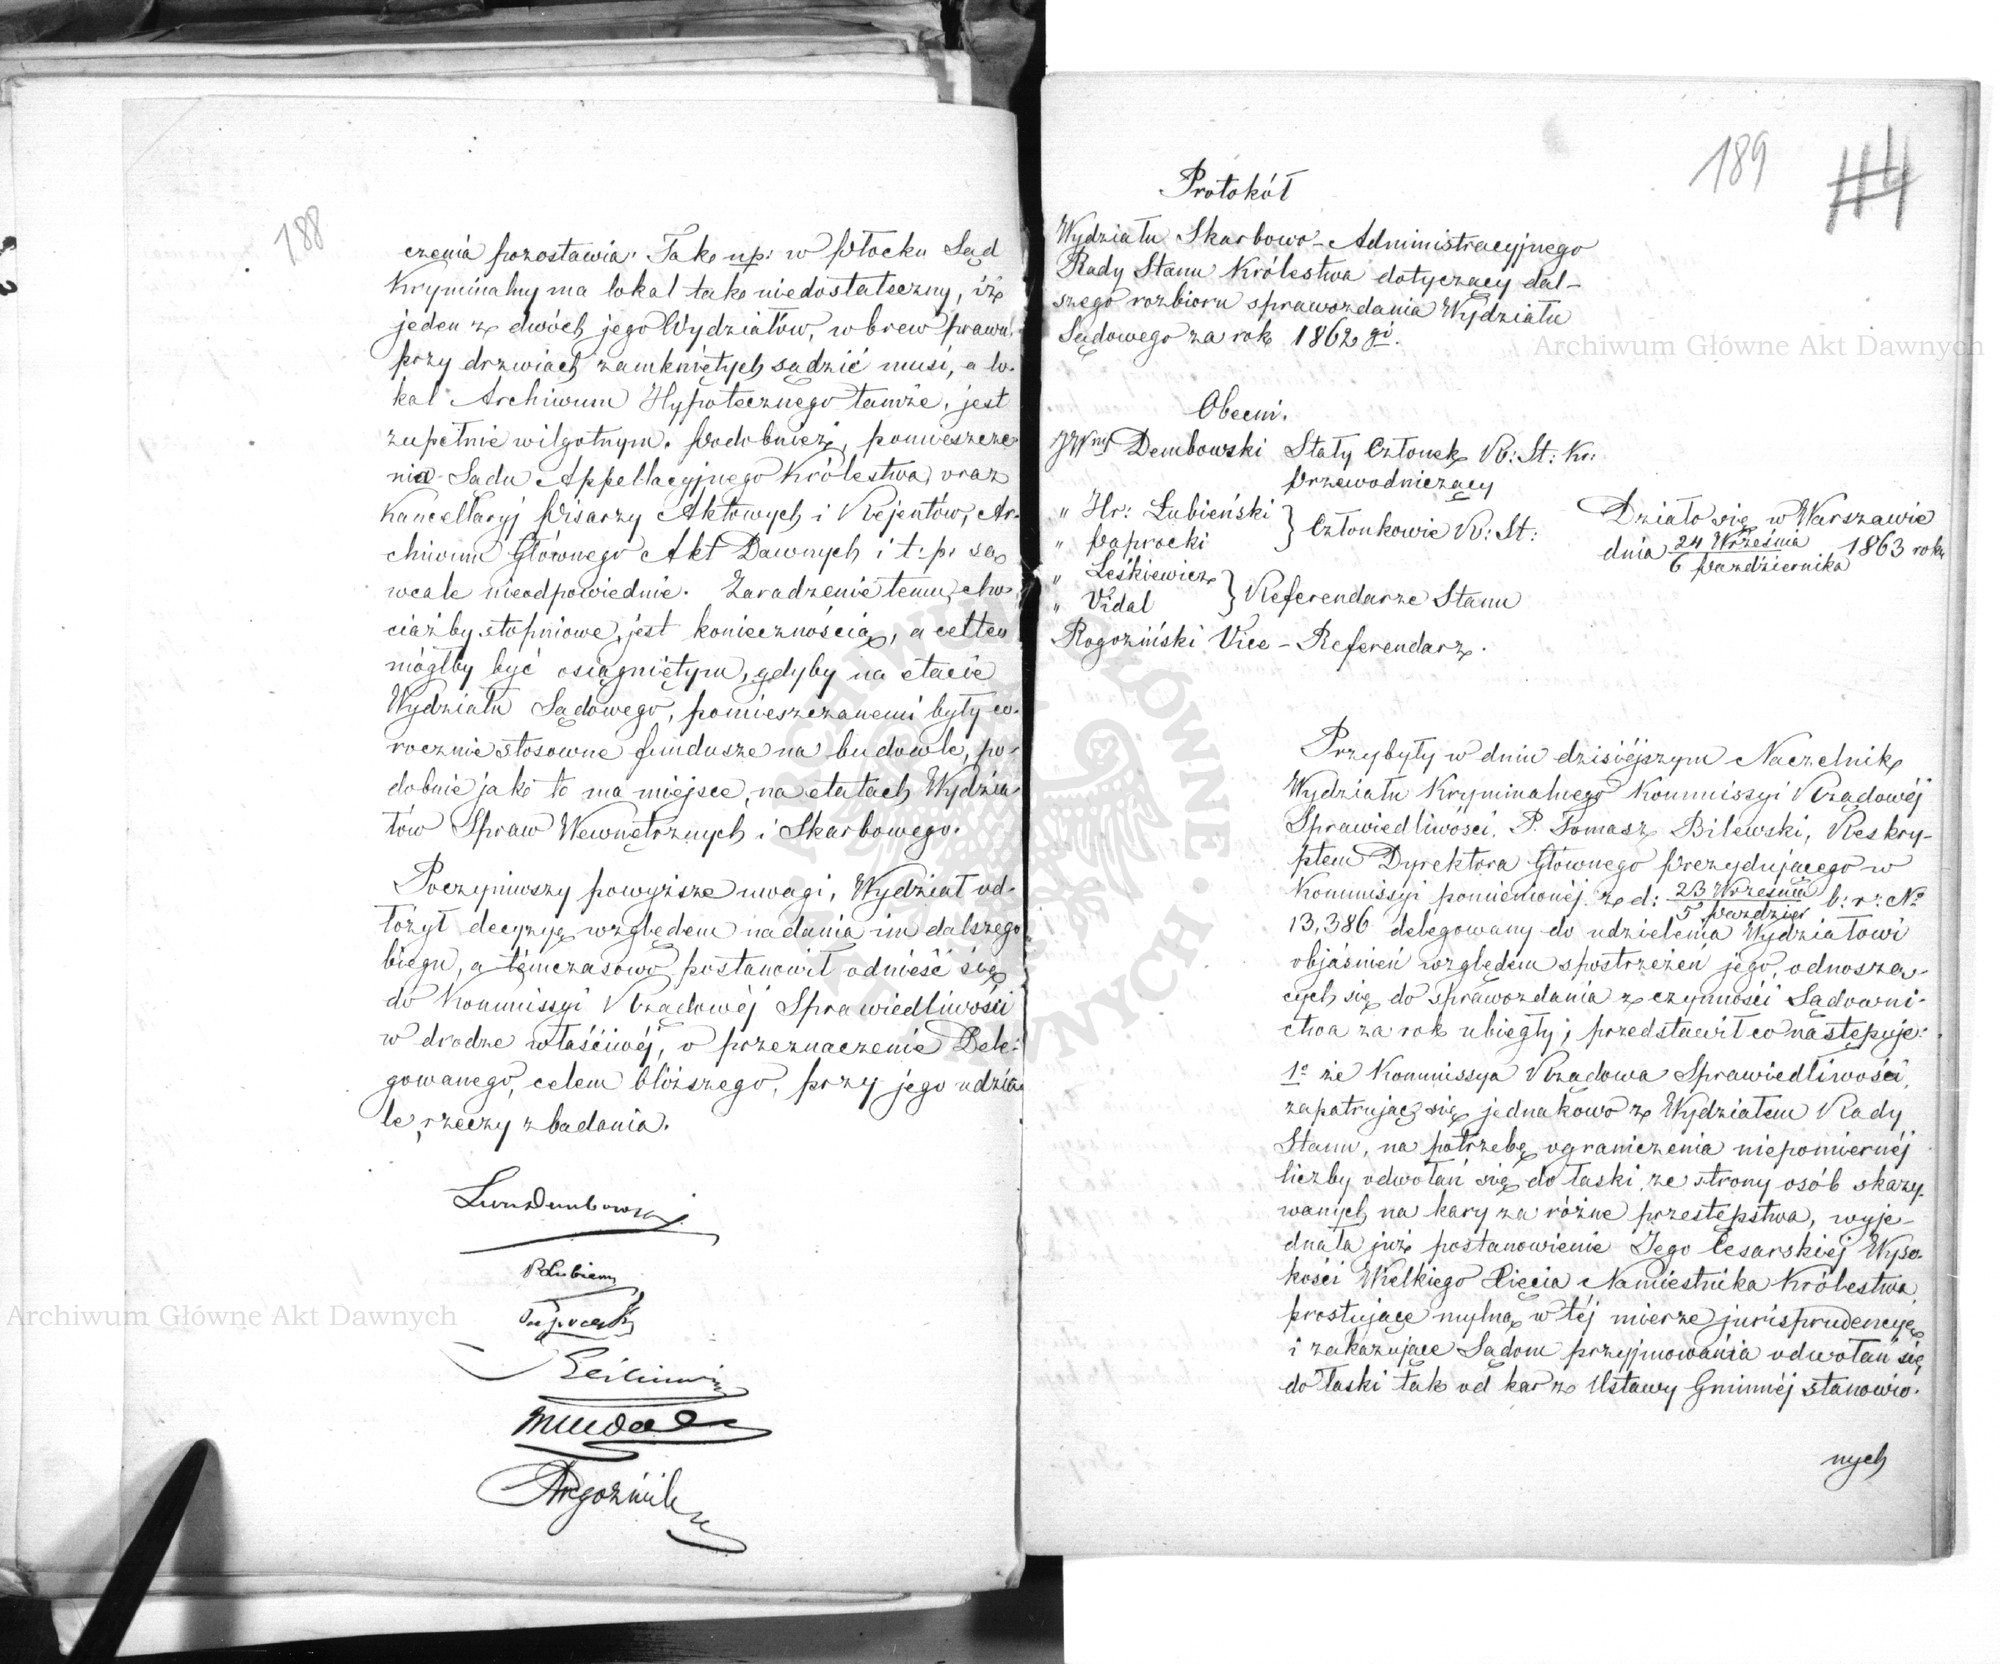 188
czenia pozostawia. Tak np: w Płocku Sąd
Kryminalny ma lokal tak niedostateczny, iż
jeden z dwóch jego Wydziałów, wbrew prawu,
przy drzwiach zamkniętych sądzić musi, a lo-
kal Archiwum Hypotecznego tamże, jest
zupełnie wilgotnym. Podobnież, pomieszcze-
nia Sądu Appellacyjnego Królestwa, oraz
Kancellaryj Pisarzy Aktowych i Rejentów, Ar-
chiwum Głównego Akt Dawnych i t: p: są
wcale nieodpowiednie. Zaradzenie temu, cho-
ciażby stopniowe, jest koniecznością, a cel ten
mógłby być osiągniętym, gdyby na etacie
Wydziału Sądowego, pomieszczanemi były co-
rocznie stosowne fundusze na budowle, po-
dobnie jak to ma miejsce, na etatach Wydzia-
łów Spraw Wewnętrznych i Skarbowego.
Poczyniwszy powyższe uwagi, Wydział od-
łożył decyzyę względem nadania im dalszego
biegu, a tymczasowo postanowił odnieść się
do Kommissyi Rządowéj Sprawiedliwości
w drodze właściwéj, o przeznaczenie Dele-
gowanego, celem bliższego, przy jego udzia-
le, rzeczy zbadania.
Leon Dembowski
P Łubień
Paprocki
Leśkiewicz
Vidal
Rogoziński
189
Protokół
Wydziału Skarbowo-Administracyjnego
Rady Stanu Królestwa dotyczący dal-
szego rozbioru sprawozdania Wydziału
Sądowego za rok 1862 gi.
Obecni.
JWny Dembowski Stały Członek R: St: Kr:
Przewodniczący
" Hr: Łubieński } Członkowie R: St:
" Paprocki
" Leśkiewicz } Referendarze Stanu
" Vidal
Rogoziński Vice-Referendarz.
Działo się w Warszawie
dnia 24 Września / 6 Października 1863 roku
Przybyły w dniu dzisiéjszym Naczelnik
Wydziału Kryminalnego Kommissyi Rządowéj
Sprawiedliwości, P. Tomasz Bilewski, Reskry-
ptem Dyrektora Głównego Prezydującego w
Kommissyi pomienionéj z d: 23 Września / 5 Paździer b: r: No
13,386 delegowany do udzielenia Wydziałowi
objaśnień względem spostrzeżeń jego, odnoszą-
cych się do sprawozdania z czynności Sądowni-
ctwa za rok ubiegły, przedstawił co następuje:
1o że Kommissya Rządowa Sprawiedliwości,
zapatrując się jednakowo z Wydziałem Rady
Stanu, na potrzebę ograniczenia niepomiernéj
liczby odwołań się do łaski, ze strony osób skazy-
wanych na kary za różne przestępstwa, wyje-
dnała już postanowienie Jego Cesarskiéj Wyso-
kości Wielkiego Xięcia Namiestnika Królestwa,
prostujące mylną w téj mierze jurisprudencyę
i zakazujące Sądom przyjmowania odwołań się
do łaski tak od kar z Ustawy Gminnéj stanowio-
nych
Archiwum Główne Akt Dawnych
Archiwum Główne Akt Dawnych
ARCHIWUM GŁÓWNE AKT DAWNYCH